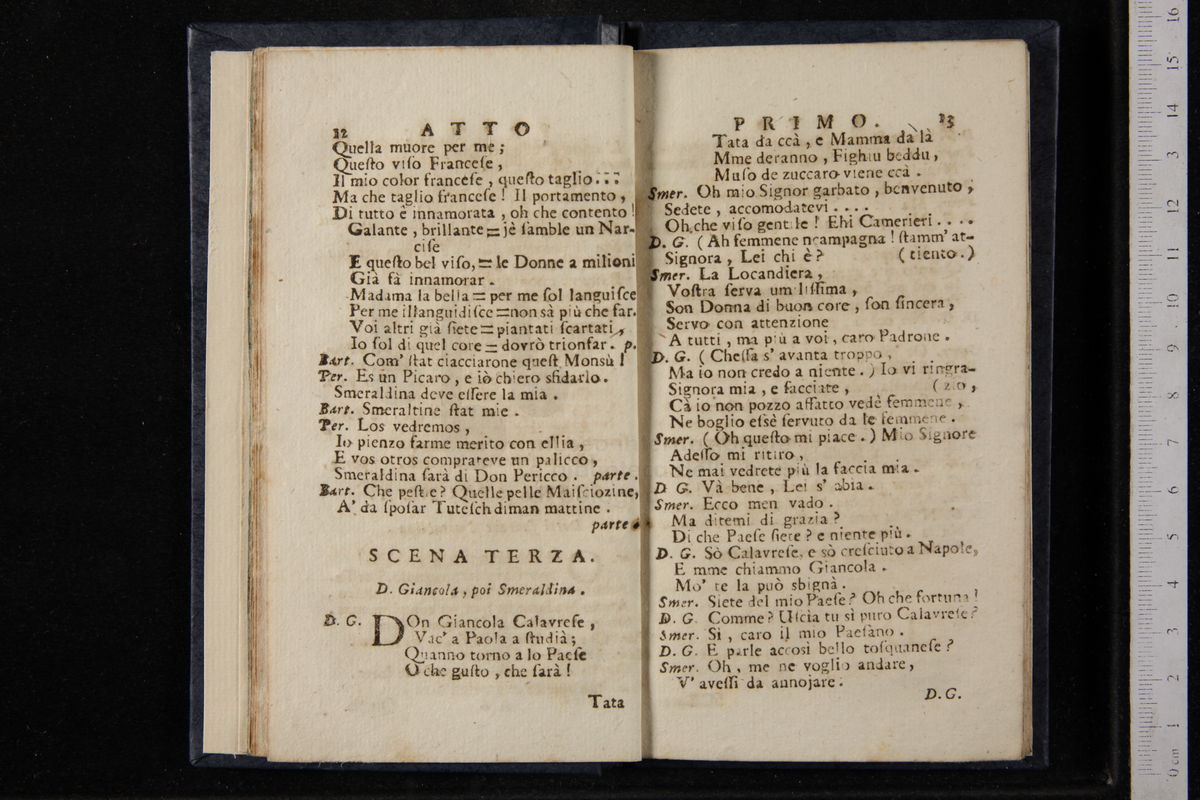 12 ATTO
Quella muore per me;
Queſto viſo Franceſe,
Il mio color franceſe, queſto taglio...
Ma che taglio franceſe! Il portamento,
Di tutto è innamorata, oh che contento!
Galante, brillante = jè ſamble un Nar-
ciſe
E queſto bel viſo, = le Donne a milioni
Già fà innamorar.
Madama la bella = per me ſol languiſce
Per me illanguidiſce = non sà più che far.
Voi altri già ſiete = piantati ſcartati,
Io ſol di quel core = dovrò trionfar. p.
Bart. Com' ſtat ciacciarone queſt Monsù!
Per. Es un Picaro, e iò chiero sfidarlo.
Smeraldina deve eſſere la mia.
Bart. Smeraltine ſtat mie.
Per. Los vedremos,
Io pienzo farme merito con ellia,
E vos otros comprareve un palicco,
Smeraldina farà di Don Pericco. parte.
Bart. Che peſte? Quelle pelle Maiſciozine,
A' da ſpoſar Tuteſch diman mattine.
parte.
SCENA TERZA.
D. Giancola, poi Smeraldina.
D. G. DOn Giancola Calavreſe,
Vac' a Paola a ſtudià;
Quanno torno a lo Paeſe
O che guſto, che ſarà!
Tata
PRIMO. 13
Tata da ccà, e Mamma da là
Mme deranno, Fighiu beddu,
Muſo de zuccaro viene ccà.
Smer. Oh mio Signor garbato, benvenuto,
Sedete, accomodatevi....
Oh che viſo gentile! Ehi Camerieri....
D. G. (Ah femmene ncampagna! ſtamm' at-
Signora, Lei chi è? (tiento.)
Smer. La Locandiera,
Voſtra ſerva umiliſſima,
Son Donna di buon core, ſon ſincera,
Servo con attenzione
A tutti, ma più a voi, caro Padrone.
D. G. (Cheſſa s' avanta troppo,
Ma io non credo a niente.) Io vi ringra-
Signora mia, e facciate, (zio,
Cà io non pozzo affatto vedè femmene,
Ne boglio eſsè ſervuto da le femmene.
Smer. (Oh queſto mi piace.) Mio Signore
Adeſſo mi ritiro,
Ne mai vedrete più la faccia mia.
D. G. Và bene, Lei s' abia.
Smer. Ecco men vado.
Ma ditemi di grazia?
Di che Paeſe ſiete? e niente più.
D. G. Sò Calavreſe, e sò creſciuto a Napole,
E mme chiammo Giancola.
Mo' te la può sbignà.
Smer. Siete del mio Paeſe? Oh che fortuna!
D. G. Comme? Uſcia tu sì puro Calavreſe?
Smer. Sì, caro il mio Paeſano.
D. G. E parle accosì bello toſquaneſe?
Smer. Oh, me ne voglio andare,
V' aveſſi da annojare.
D.G.
0 cm 1 2 3 4 5 6 7 8 9 10 11 12 13 14 15 16